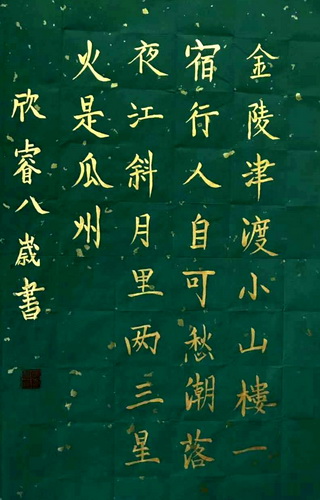 金陵津渡小山樓一
宿行人自可愁潮落
夜江斜月里两三星
火是瓜州
欣睿八歲書